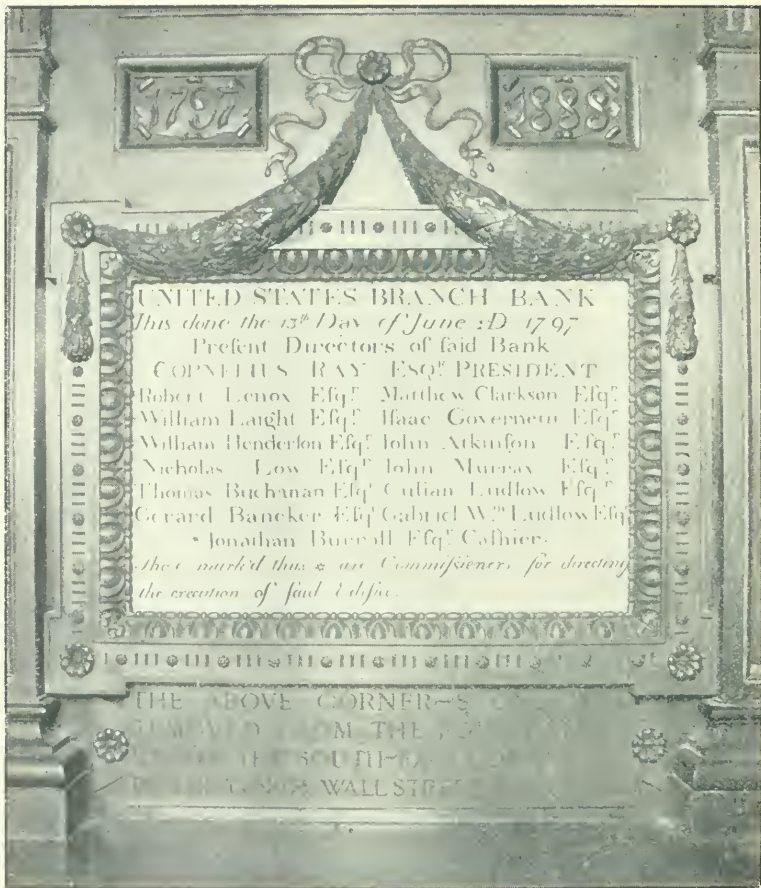 1797 1888
UNITED STATES BRANCH BANK
This done the 13th Day of June :D 1797
Preſent Directors of ſaid Bank
CORNELIUS RAY ESQr. PRESIDENT
Robert Lenox Eſqr. Matthew Clarkson Eſqr.
William Laight Eſqr. Iſaac Governeur Eſqr.
William Henderſon Eſqr. Iohn Atkinſon Eſqr.
Nicholas Low Eſqr. Iohn Murray Eſqr.
Thomas Buchanan Eſqr Culian Ludlow Eſqr.
Gerard Bancker Eſqr Gabriel Wm. Ludlow Eſqr
* Jonathan Burrall Eſqr. Caſhier.
mark'd thus * are Commiſsioners for directing
the execution of ſaid Ediſice.
THE ABOVE CORNER-
FROM THE
SOUTH-
WALL STREET